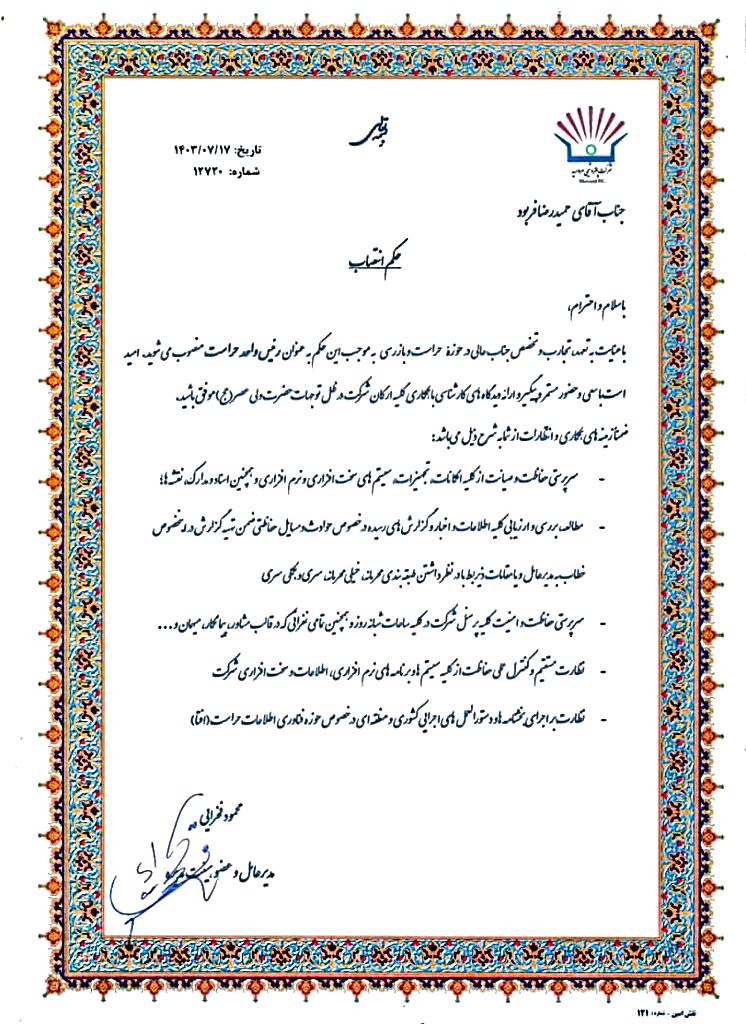 بسمه تعالی
تاریخ: ۱۴۰۳/۰۷/۱۷
شماره: ۱۲۷۲۰
جناب آقای حمیدرضا فربود
حکم انتصاب
با سلام و احترام؛
با عنایت به تعهد، تجارب و تخصص جناب عالی در حوزه حراست و بازرسی به موجب این حکم به عنوان رئیس واحد حراست منصوب می شوید. امید
است با سعی و حضور مستمر و پیگیر و ارائه دیدگاه های کارشناسی با همکاری کلیه ارکان شرکت در ظل توجهات حضرت ولی عصر(عج) موفق باشید.
ضمناً زمینه های همکاری و انتظارات از شما به شرح ذیل می باشد:
- سرپرستی حفاظت و صیانت از کلیه امکانات، تجهیزات، سیستم های سخت افزاری و نرم افزاری و همچنین اسناد و مدارک، نقشه ها؛
- مطالعه، بررسی و ارزیابی کلیه اطلاعات و اخبار و گزارش های رسیده در خصوص حوادث و مسایل حفاظتی ضمن تهیه گزارش در این خصوص
خطاب به مدیرعامل و یا مقامات ذیربط با در نظر داشتن طبقه بندی محرمانه، خیلی محرمانه، سری و بکلی سری
- سرپرستی حفاظت و امنیت کلیه پرسنل شرکت در کلیه ساعات شبانه روز و همچنین تمامی نفراتی که در قالب مشاور، پیمانکار، میهمان و ...
- نظارت مستقیم و کنترل عملی حفاظت از کلیه سیستم ها و برنامه های نرم افزاری، اطلاعات و سخت افزاری شرکت
- نظارت بر اجرای بخشنامه ها و دستورالعمل های اجرایی کشوری و منطقه ای در خصوص حوزه فناوری اطلاعات حراست (افتا)
محمود فخرایی
مدیرعامل و عضو هیئت مدیره
نقش امین - شماره: ۱۲۱